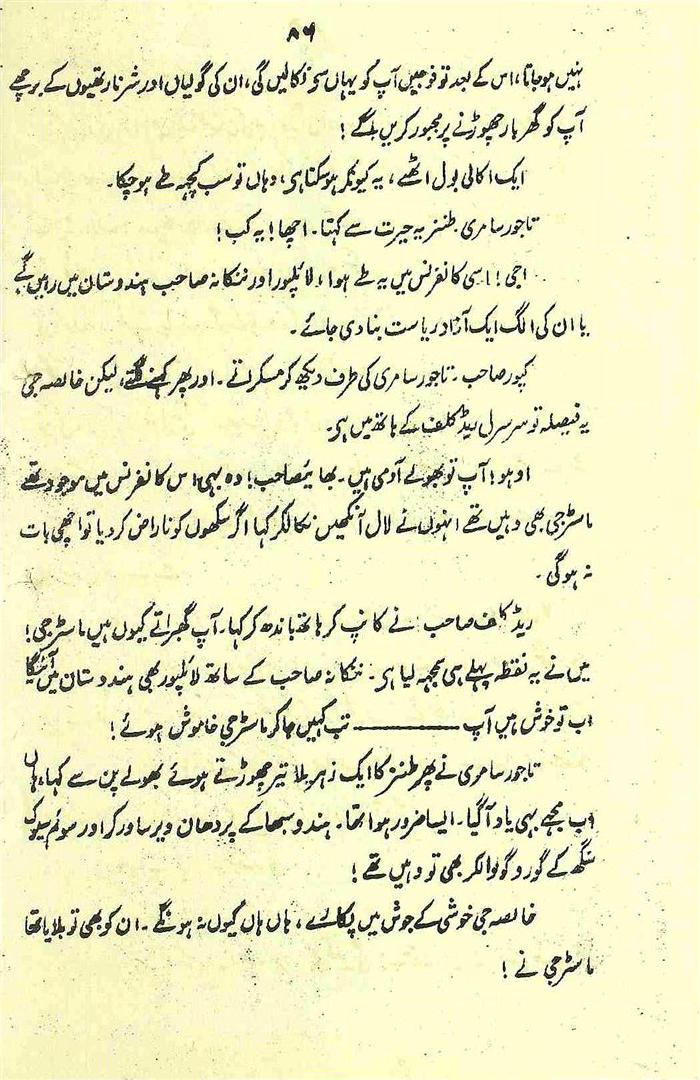 ۸۶
نہیں ہو جاتا، اس کے بعد تو فوجیں آپ کو یہاں سے نکالیں گی، ان کی گولیاں اور شرنارتھیوں کے برچھے
آپ کو گھر بار چھوڑنے پر مجبور کریں گے!
ایک اکالی بول اٹھے، یہ کیونکر ہو سکتا ہی، وہاں تو سب کچہہ طے ہو چکا۔
تاجور سامری طنزیہ حیرت سے کہتا۔ اچھا! یہ کب!
اجی! اسی کانفرنس میں یہ طے ہوا، لائلپور اور ننکانہ صاحب ہندوستان میں رہیں گے
یا ان کی الگ ایک آزاد ریاست بنا دی جائے۔
کپور صاحب۔ تاجور سامری کی طرف دیکھ کر مسکراتے۔ اور پھر کہنے لگتے، لیکن خالصہ جی
یہ فیصلہ تو سر سرل ریڈ کلف کے ہاتھ میں ہی۔
اوہو! آپ تو بھولے آدمی ہیں۔ بھائیصاحب! وہ بہی اس کانفرنس میں موجود تھے
ماسٹر جی بھی وہیں تھے انہوں نے لال آنکھیں نکالکر کہا اگر سکھوں کو ناراض کر دیا تو اچھی بات
نہ ہو گی۔
ریڈ کلف صاحب نے کانپ کر ہاتھ باندھ کر کہا۔ آپ گھبراتے کیوں ہیں ماسٹر جی!
میں نے یہ نقطہ پہلے ہی سمجہہ لیا ہی۔ ننکانہ صاحب کے ساتھ لائلپور بھی ہندوستان میں آئیگا
اب تو خوش ہیں آپ ——— تب کہیں جا کر ماسٹر جی خاموش ہوئے!
تاجور سامری نے پھر طنز کا ایک زہریلا تیر چھوڑتے ہوئے بھولے پن سے کہا، ہاں
اب مجھے بہی یاد آگیا۔ ایسا ضرور ہوا تھا۔ ہندو سبھا کے پردھان ویر ساورکر اور سوئم سیوک
سنگھ کے گورو گولوالکر بھی تو وہیں تھے!
خالصہ جی خوشی کے جوش میں پکارے، ہاں ہاں کیوں نہ ہونگے۔ ان کو بھی تو بلایا تھا
ماسٹر جی نے!